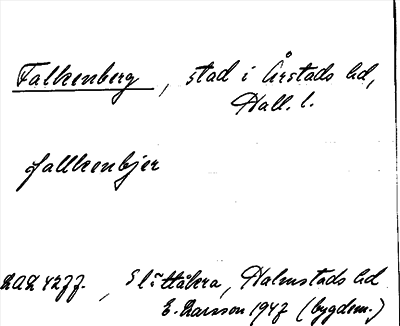 Falkenberg, stad i Årstads hd,
Hall. l.
fallkenbjer
Slättåkra, Halmstads hd
E. Larsson 1947 (bygdem.)